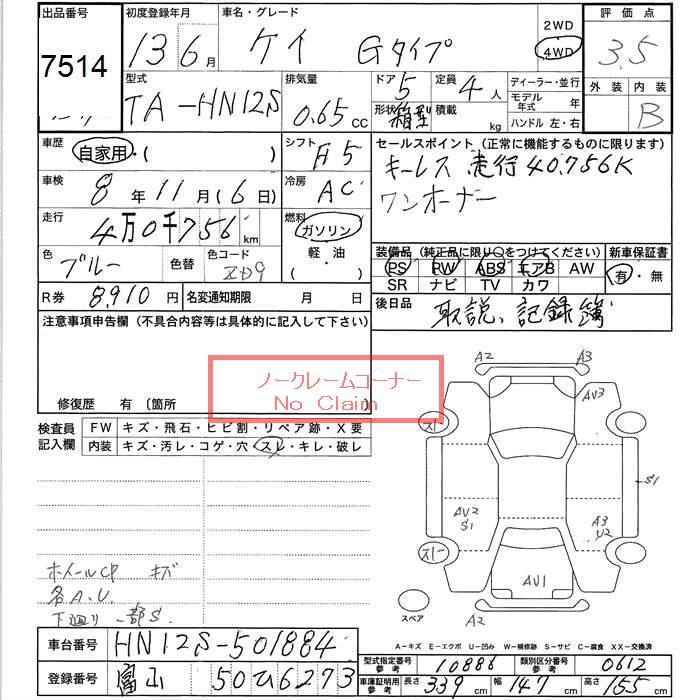 出品番号 7514
初度登録年月 13 6月
車名・グレード ケイ Gタイプ
2WD
4WD
評価点 3.5
外装 内装 B
型式 TA-HN12S
排気量 0.65 cc
ドア 5 形状 箱型
定員 4人 積載 kg
ディーラー・並行
モデル年式 年
ハンドル 左・右
車歴 自家用・( )
シフト F5
車検 8年11月(6日)
冷房 AC
走行 4万0千756km
燃料 ガソリン 軽・油 ( )
色 ブルー 色替 色コード ZD9
R券 8,910円 名変通知期限 月 日
セールスポイント (正常に機能するものに限ります)
キーレス 走行40,756K
ワンオーナー
装備品 (純正品に限り○をつけてください) 新車保証書
PS PW ABS エアB AW 有・無
SR ナビ TV カワ
後日品 取説、記録簿
注意事項申告欄 (不具合内容等は具体的に記入して下さい)
ノークレームコーナー
No Claim
修復歴 有 〔箇所
検査員記入欄
FW キズ・飛石・ヒビ割・リペア跡・X要
内装 キズ・汚レ・コゲ・穴・スレ・キレ・破レ
A2 A3
AV3
スト
S1
AV2 S1
A3 U2
スト
AV1
A2
スペア
ホイールCP キズ
各A.U.
下廻り 一部S
A-キズ E-エクボ U-凹み W-補修跡 S-サビ C-腐食 XX-交換済
車台番号 HN12S-501884
登録番号 富山 50ひ6273
型式指定番号参考 10886 類別区分番号参考 0612
車庫証明用参考 長さ 339cm 幅 147cm 高さ 155cm